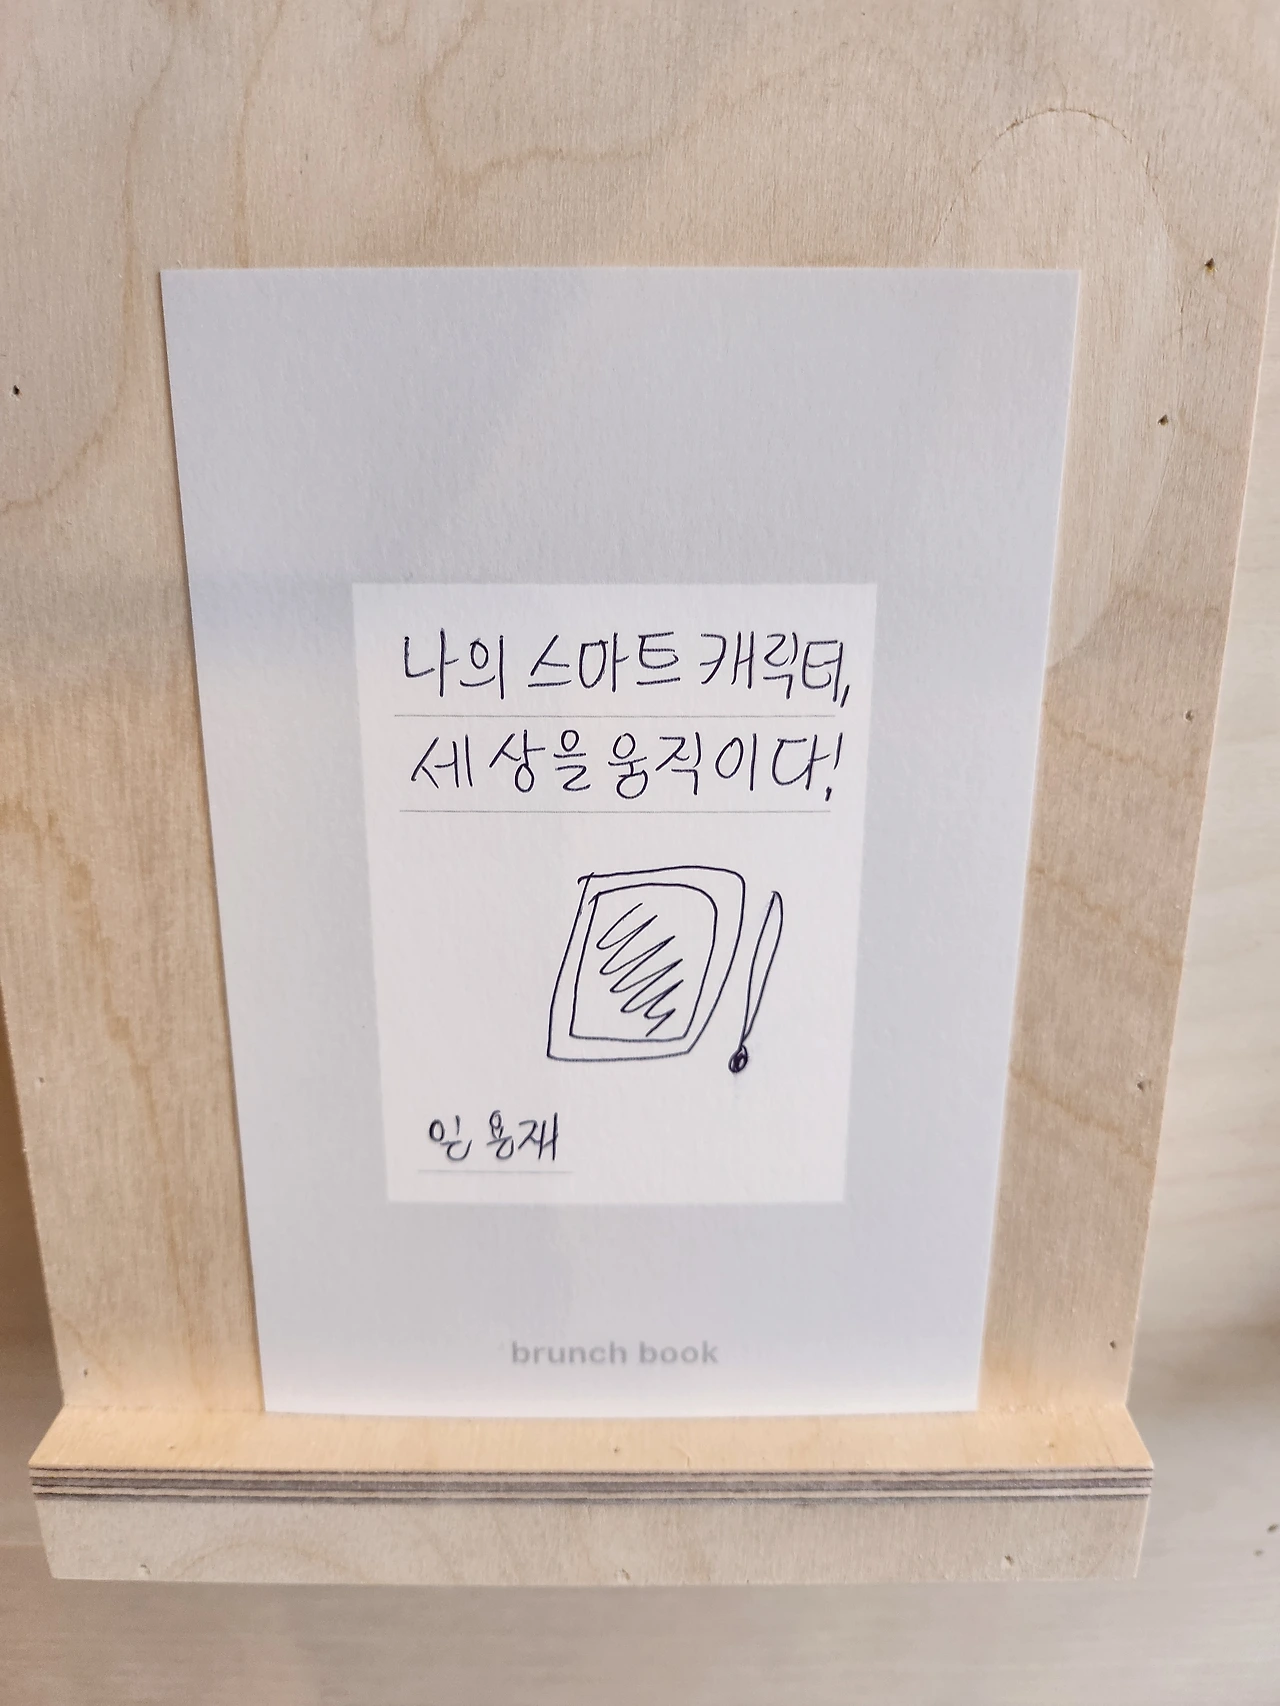 나의 스마트 캐릭터,
세상을 움직이다!
임용재
brunch book